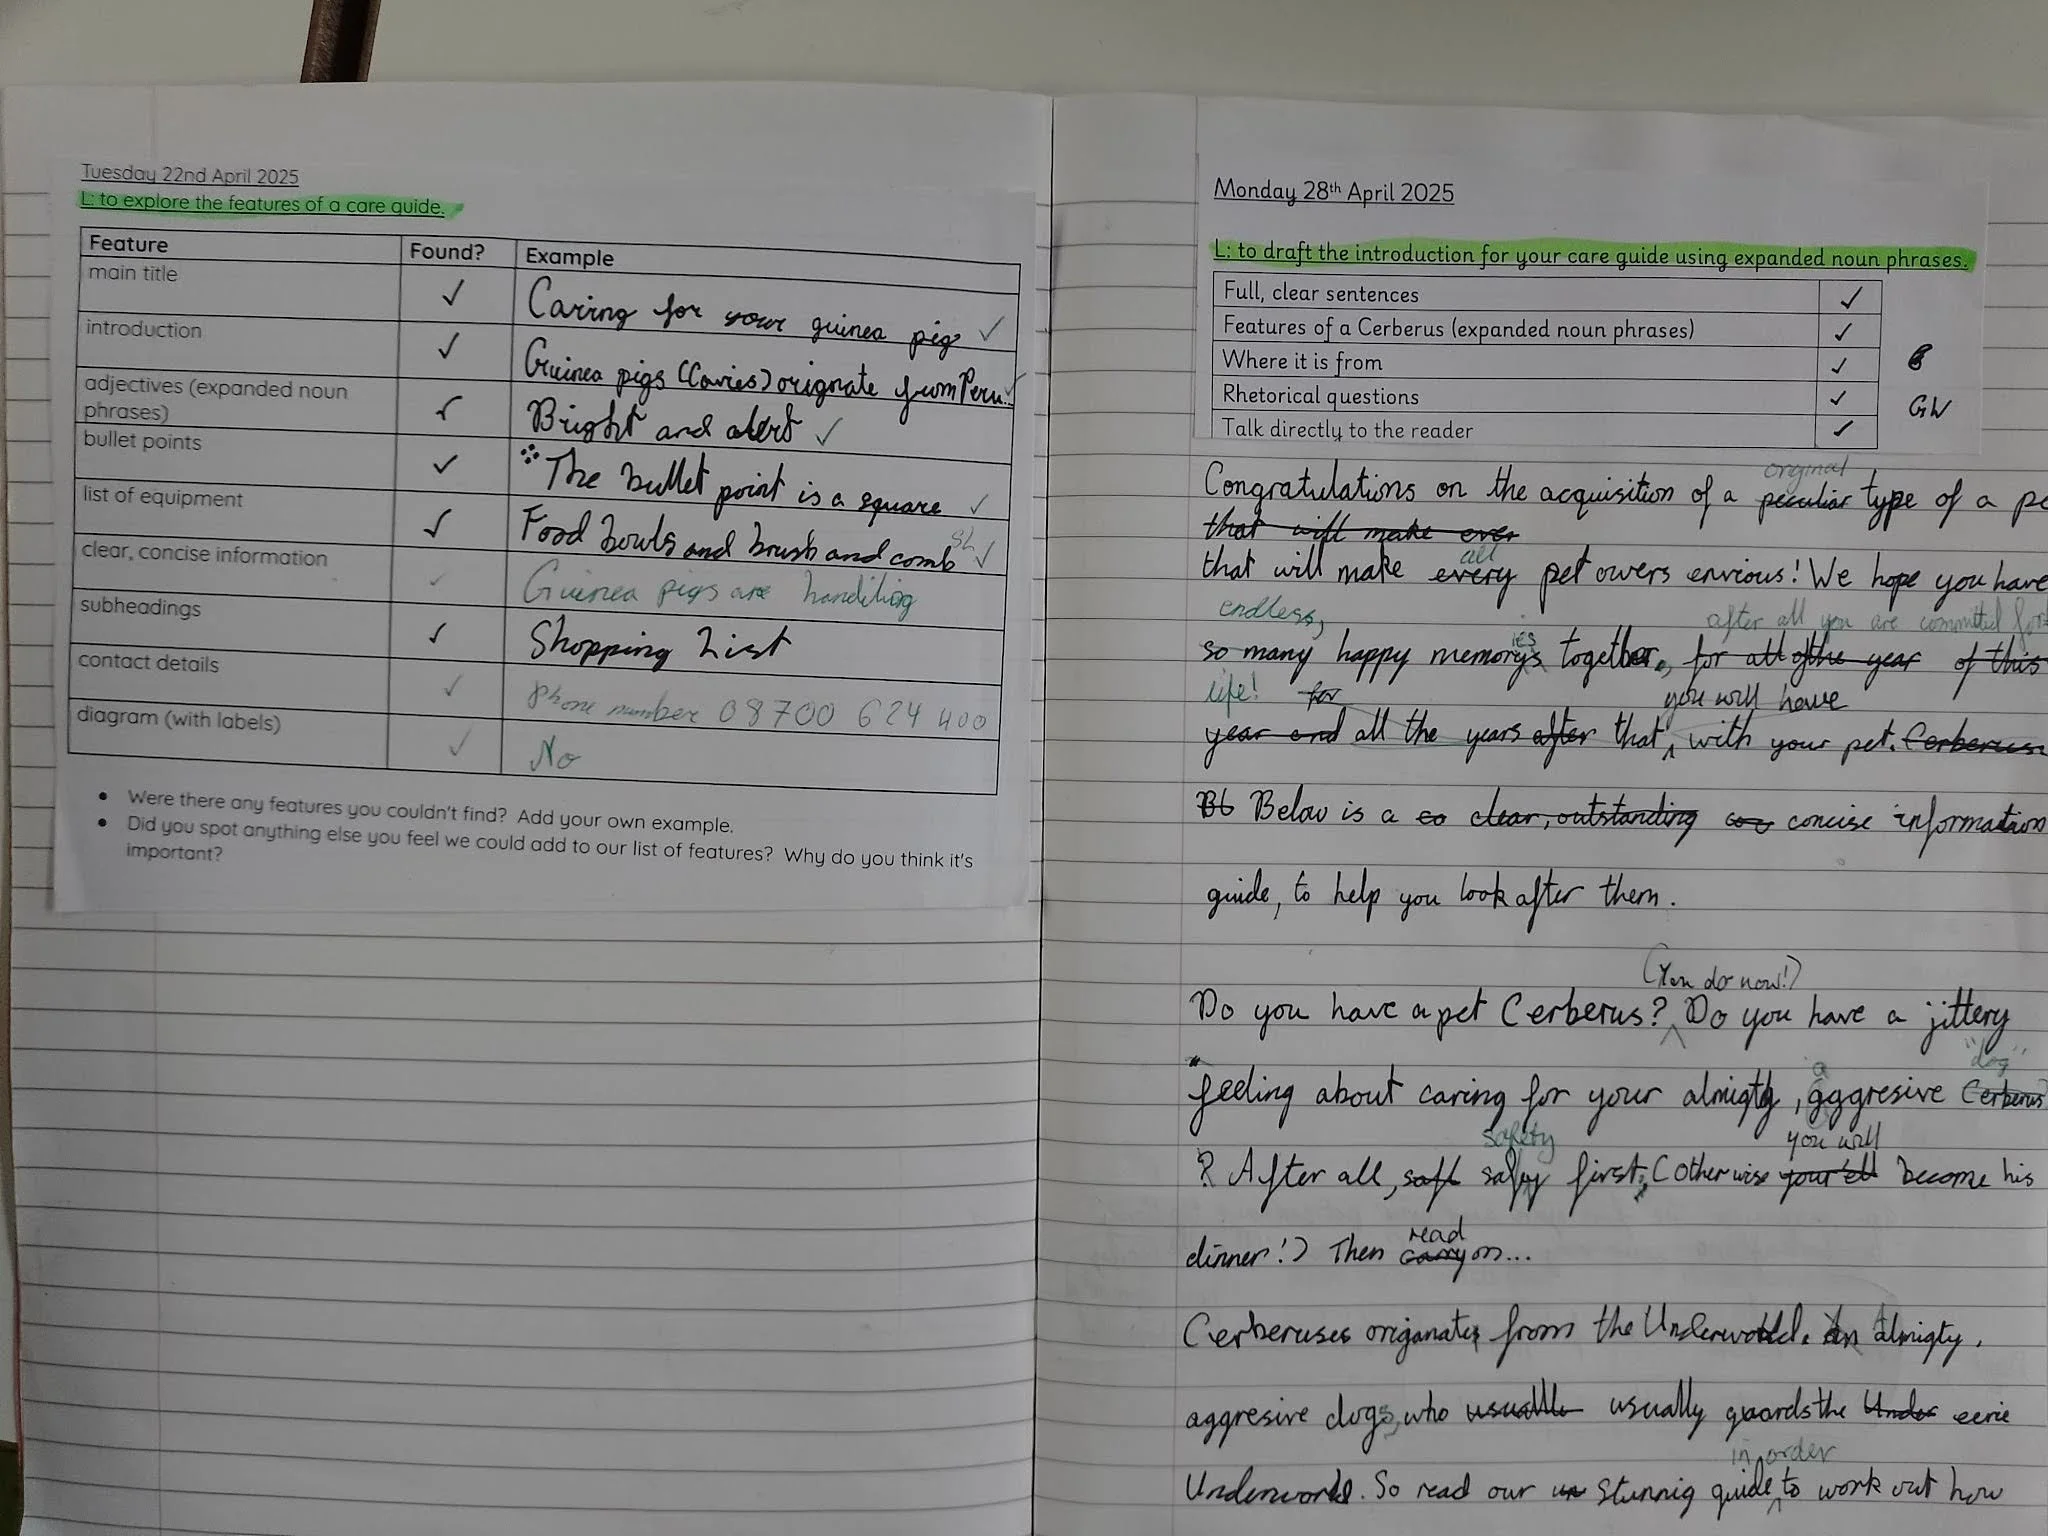 Tuesday 22nd April 2025
L: to explore the features of a care guide.
Feature Found? Example
main title ✓ Caring for your guinea pig ✓
introduction ✓ Guinea pigs (Cavies) orignate from Peru... ✓
adjectives (expanded noun phrases) ✓ Bright and alert ✓
bullet points ✓ The bullet point is a square ✓
list of equipment ✓ Food bowls and brush and comb ✓
clear, concise information ✓ Guinea pigs are handiling
subheadings ✓ Shopping List
contact details ✓ phone number 08700 624 400
diagram (with labels) ✓ No
• Were there any features you couldn't find? Add your own example.
• Did you spot anything else you feel we could add to our list of features? Why do you think it's
important?
Monday 28th April 2025
L: to draft the introduction for your care guide using expanded noun phrases.
Full, clear sentences ✓
Features of a Cerberus (expanded noun phrases) ✓
Where it is from ✓
Rhetorical questions ✓
Talk directly to the reader ✓
GW
orginal
Congratulations on the acquisition of a peculiar type of a pe
that will make ever
all
that will make every pet owers envious! We hope you have
endless, ies after all you are committed for
so many happy memorys together, for all of the year of this
life! for you will have
year and all the years after that, with your pet. Cerberus
Bl Below is a co clear, outstanding con concise information
guide, to help you look after them.
(You do now!)
Do you have a pet Cerberus? Do you have a jittery
a "dog"
feeling about caring for your almigty, aggresive Cerberus
safety you will
? After all, saft safy first. (Otherwise your'ell become his
read
dinner!) Then carry on...
Cerberuses origanates from the Underworld. An almigty,
aggresive dogs, who usuallle usually guards the Under eerie
in order
Underworld. So read our un stunnig guide to work out how